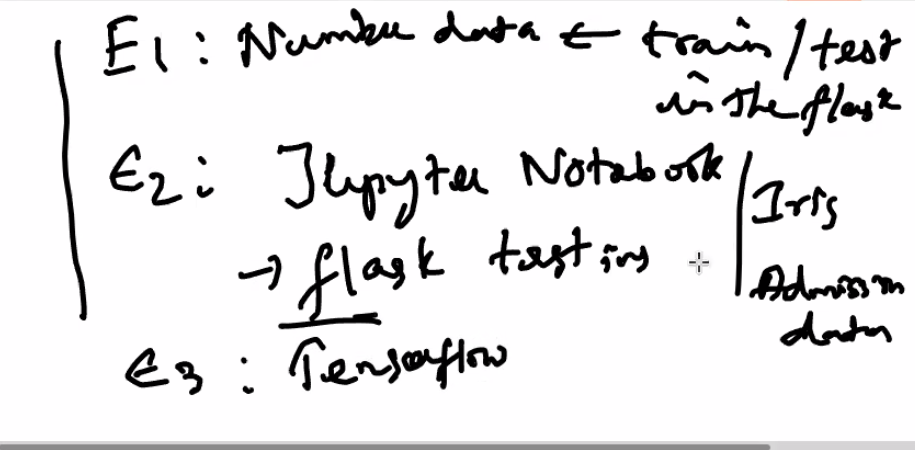 E1 : Number data ← train / test
in the flask
E2 : Jupyter Notebook
→ flask testing
Iris
Admission
data
E3 : Tensorflow